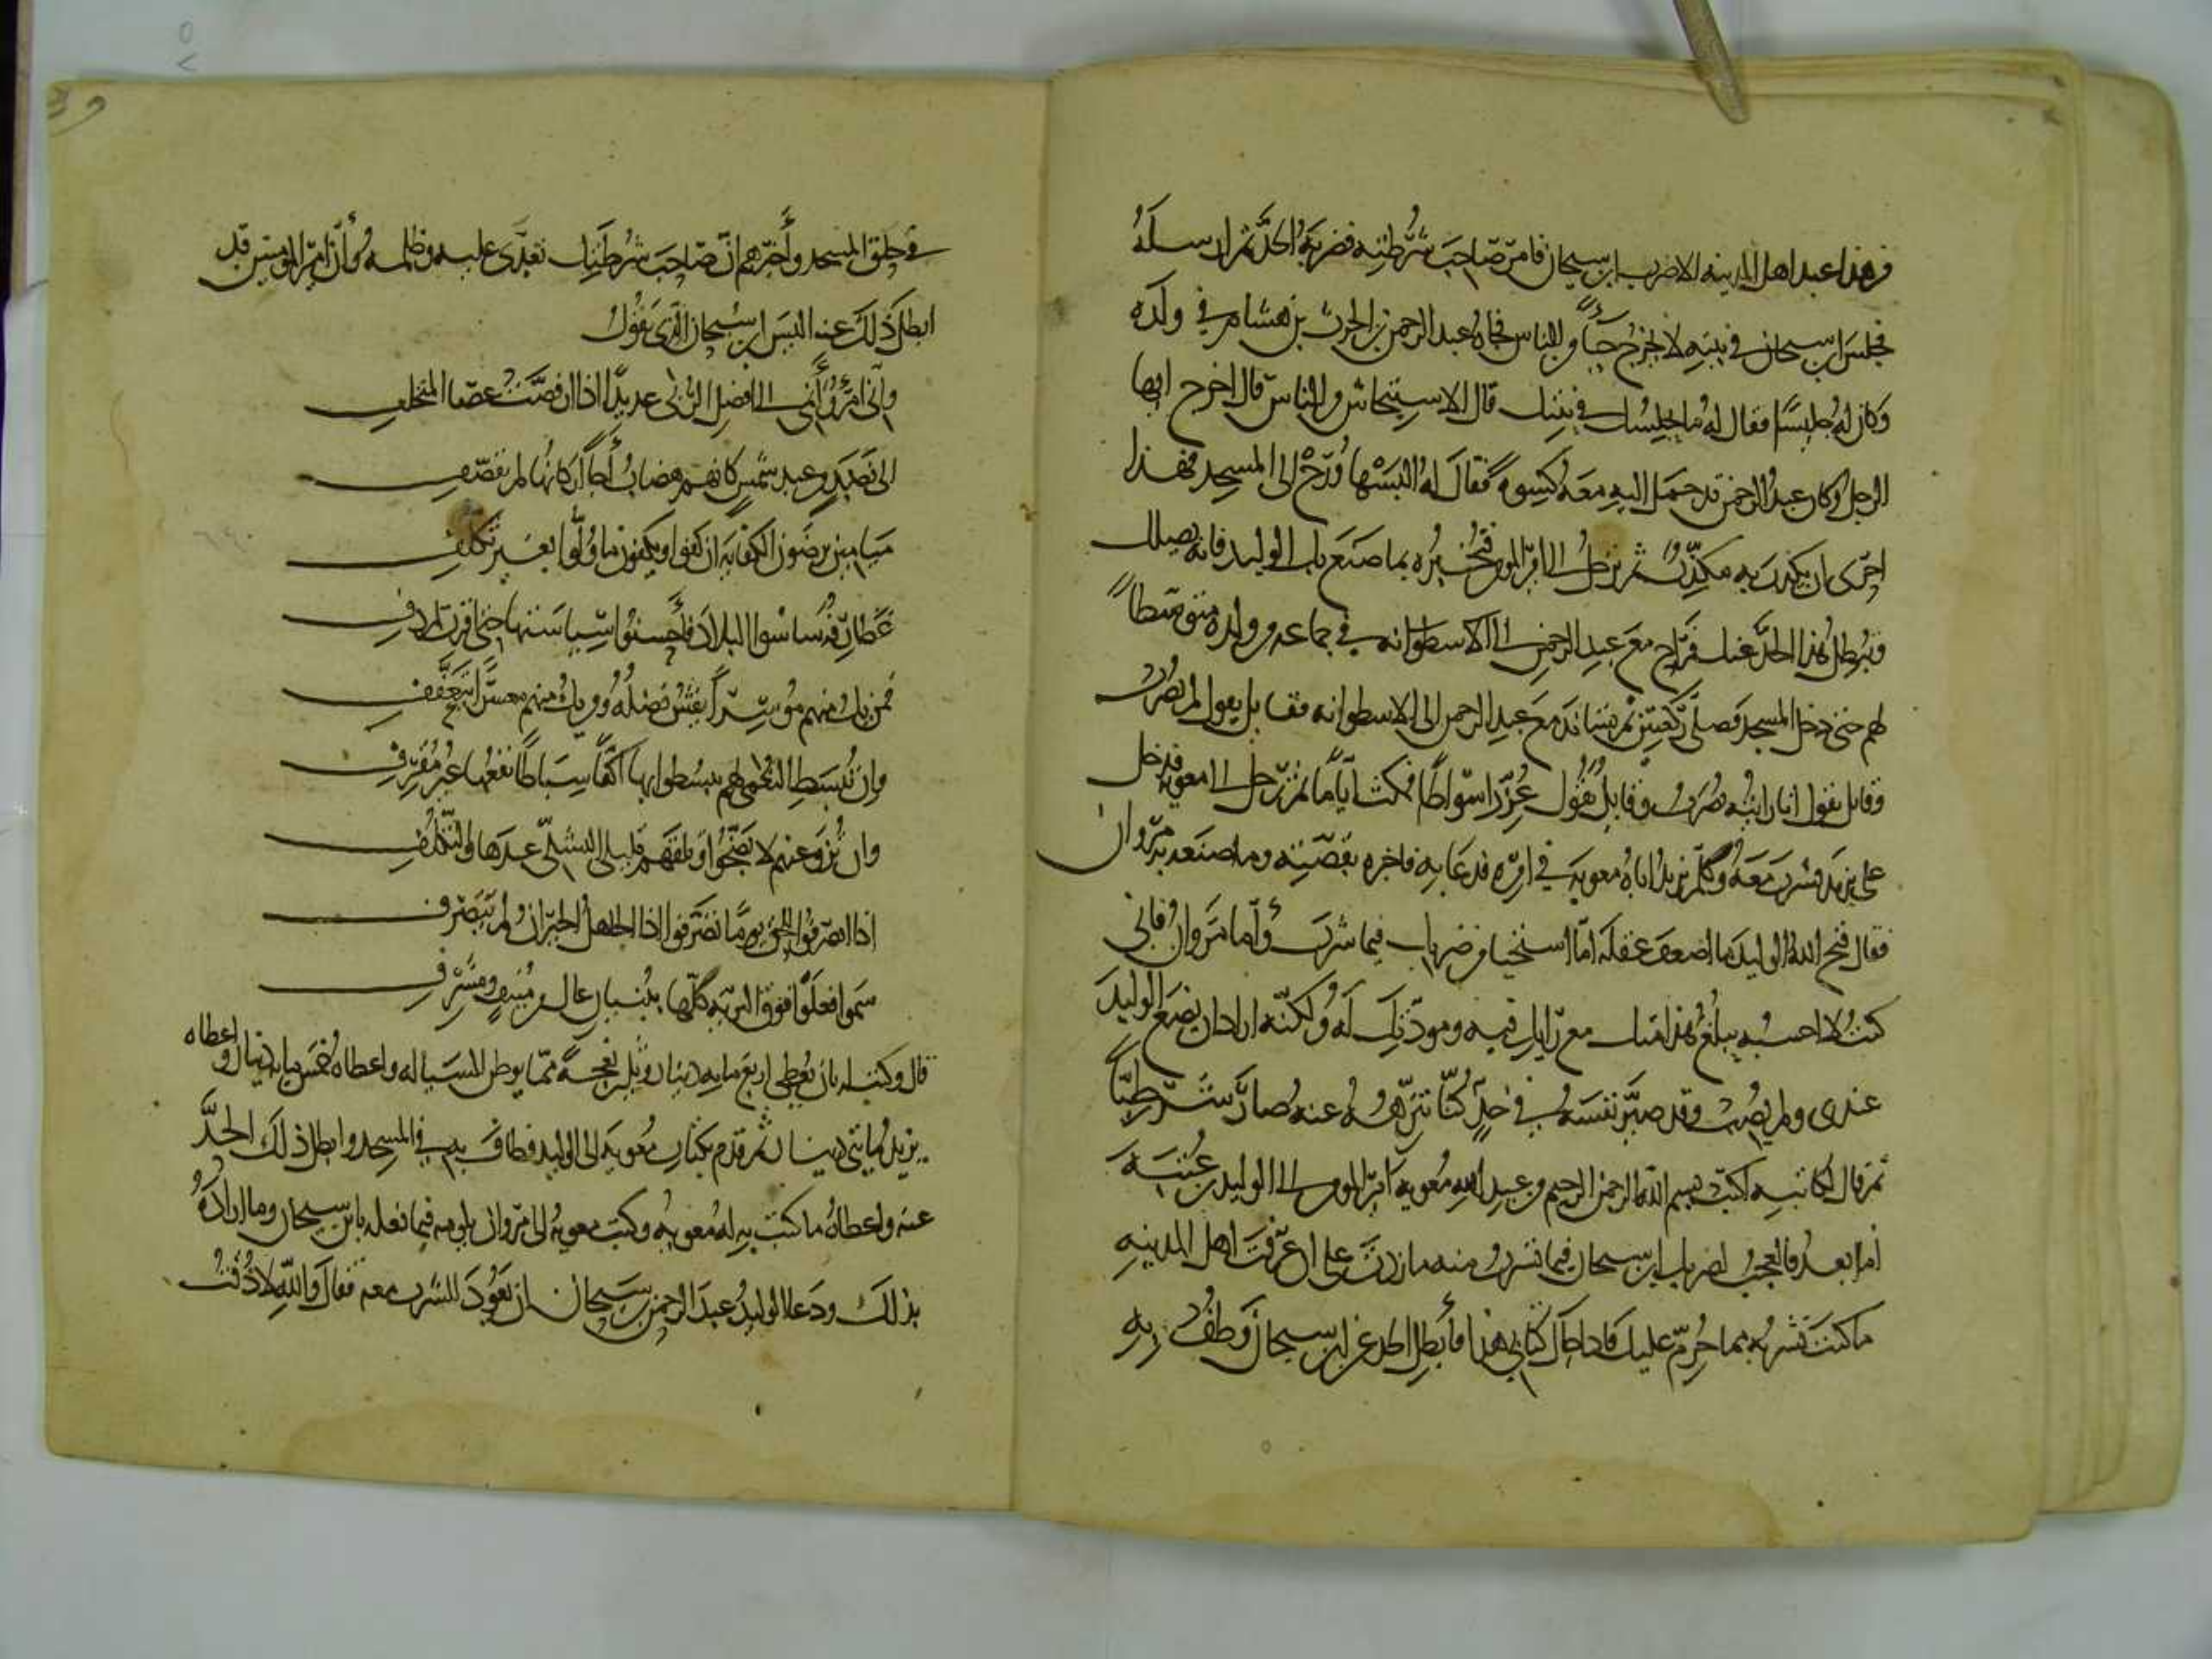 من هذا عند اهل المدينه الا ضرب ابن سيحان فامر صاحب شرطته فضربه الحد ثم ارسله
فجلس ابن سيحان في بيته لا يخرج حياءً من الناس فجاه عبد الرحمن بن الحرث بن هشام في ولده
وكان له جليسًا فقال له ما يجلسك في بيتك قال الاستحيا من الناس قال اخرج ايها
الرجل وكان عبد الرحمن قد حمل اليه معه كسوةً فقال له البسها ورح الى المسجد فهذا
احرى ان يكذب به مكذب ثم ترحل الى امير المومنين فتخبره بما صنع بك الوليد فانه يصلك
ويبطل هذا الحد عنك فراح مع عبد الرحمن الى الاسطوانه في جماعه من ولده متوسطاً
لهم حتى دخل المسجد فصلى ركعتين ثم تساند مع عبد الرحمن الى الاسطوانه فقايل يقول لم يضرب
وقايل يقول انا رايته يضرب وقايل يقول عزر اسواطًا فمكث ايامًا ثم رحل الى معويه فدخل
على يزيد فشرب معه وكلم يزيد اباه معويه في امره فدعا به فاخبره بقصته وما صنعه به مروان
فقال قبح الله الوليد ما اضعف عقله اما استحيا من ضربك فيما شرب وأما مروان فاني
كنت لا احسبه يبلغ هذا منك مع رايك فيه ومودتك له ولكنه اراد ان يضع الوليد
عندي ولم يصب وقد صير نفسه في حدٍ كنا ننزهه عنه صار شرطيًّا
ثم قال لكاتبه اكتب بسم الله الرحمن الرحيم من عبد الله معويه امير المومنين الى الوليد بن عتبه
أما بعد فالعجب لضربك ابن سيحان فيما تشرب منه ما زدت على ان عرفت اهل المدينه
ما كنت تشربه مما حرم عليك فاذا جاك كتابي هذا فأبطل الحد عن ابن سيحان وطف به
في حلق المسجد وأخبرهم ان صاحب شرطتك تعدى عليه وظلمه وأن امير المومنين قد
ابطل ذلك عنه اليس ابن سيحان الذي يقول
واني امرؤ أنمى الى افضل الربى عديدًا اذا ارفضت عصا المتحلف
الى نضدٍ من عبد شمسٍ كانهم هضاب أجاً اركانها لم تقصف
ميامين يرضون الكفايه ان كفوا ويكفون ما ولوا بغير تكلف
غطارف ساسوا البلاد فأحسنوا سياستها حتى اقرت لمردف
فمن يك منهم موسراً يفش فضله ومن يك منهم معسراً يتعفف
وان تبسط النعمى لهم يبسطوا بها اكفًا سباطًا نفعها غير مقرف
وان تزو عنهم لا يضجوا وتلفهم قليلي التشكي عندها والتكلف
اذا انصرفوا للحق يومًا تصرفوا اذا الجاهل الحيران لم يتصرف
سموا فعلوا فوق البريه كلها ببنيان عالٍ من منيفٍ ومشرف
قال وكتب له بان يعطى اربع مايه دينار وثلثين نعجةً مما يوطن السياله واعطاه خمس مايه دينار واعطاه
يزيد مايتي دينار ثم قدم بكتاب معويه الى الوليد فطاف به في المسجد وابطل ذلك الحد
عنه واعطاه ما كتب به له معويه وكتب معويه الى مروان يلومه فيما فعله بابن سيحان وما اراده
بذلك ودعا الوليد عبد الرحمن بن سيحان ان يعود للشرب معه فقال والله لا ذقت